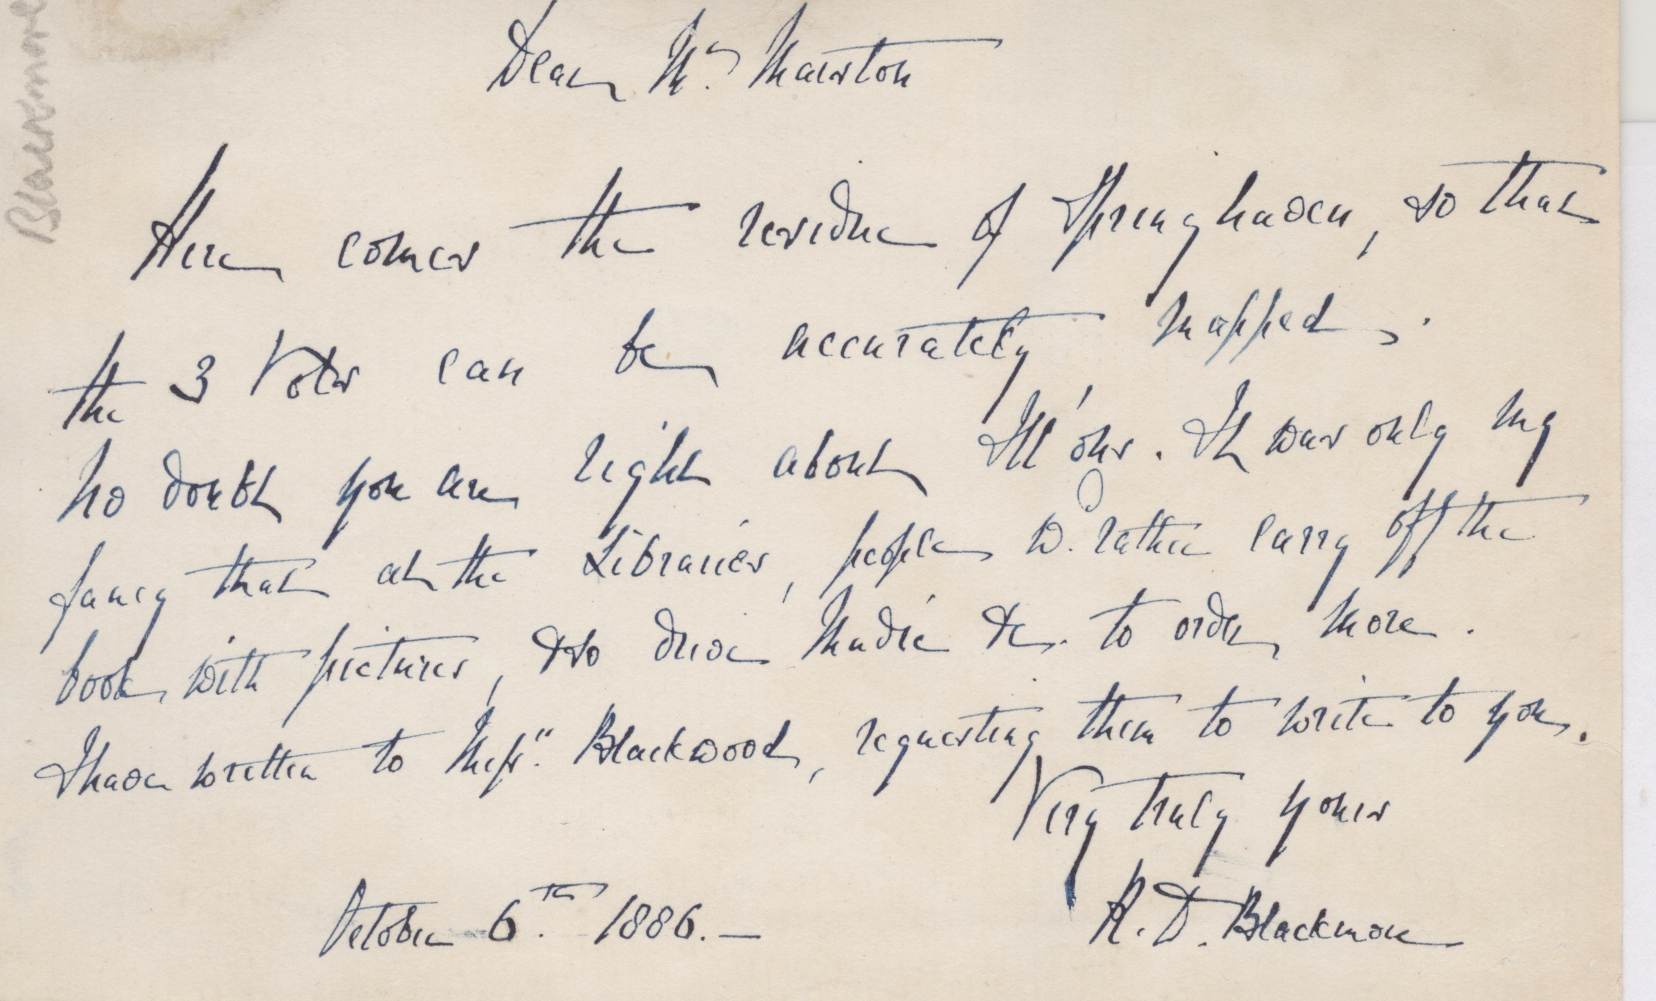 Blackmore
Dear Mr. Marston
Here comes the residue of Springhaven, so that
the 3 Vols can be accurately mapped.
No doubt you are right about Ill'ons. It was only my
fancy that at the Libraries, people wd. rather carry off the
book with pictures, & so drive Mudie &c. to order more.
I have written to Messrs. Blackwood, requesting them to write to you.
Very truly yours
October 6th. 1886.— R. D. Blackmore